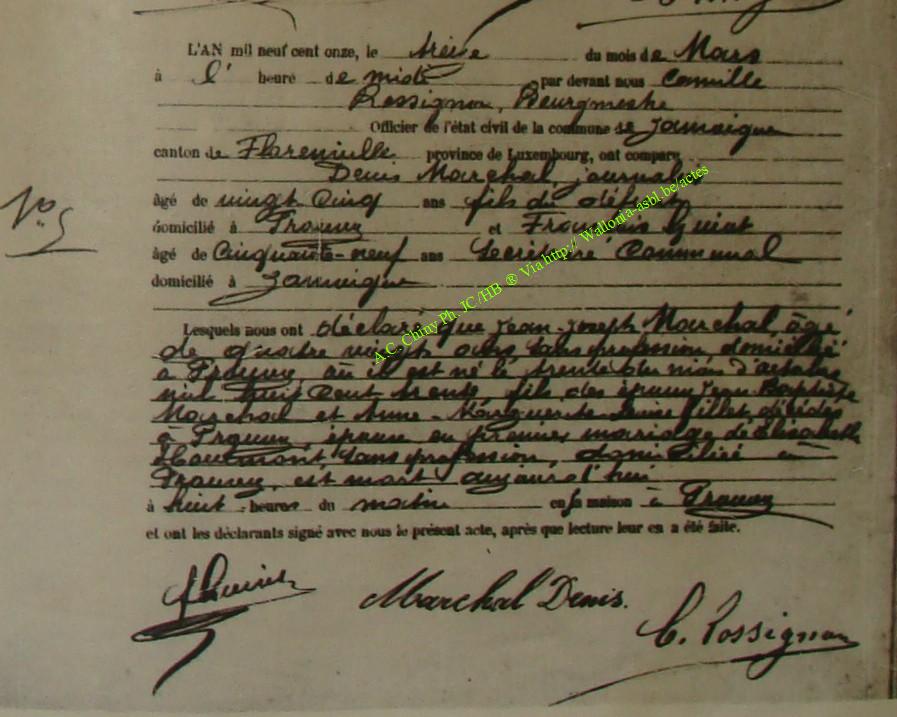 L'AN mil neuf cent onze, le treize du mois de Mars
à l' heure de midi par devant nous Camille
Rossignon, Bourgmestre
Officier de l'état civil de la commune de Jamoigne
canton de Florenville province de Luxembourg, ont comparu
Denis Marchal, journalier
âgé de vingt cinq ans fils du défunt
domicilié à Prouvy et François Guiot
âgé de Cinquante-neuf ans Secrétaire Communal
domicilié à Jamoigne
N° 5
Lesquels nous ont déclaré que Jean-Joseph Marchal, âgé
de quatre vingt ans sans profession domicilié
à Prouvy, où il est né le trente du mois d'octobre
mil huit cent trente, fils des époux Jean Baptiste
Marchal et Anne-Marguerite décédés
à Prouvy, époux en premier mariage de Elisabeth
sans profession, domiciliée à
Prouvy, est mort aujourd'hui
à huit heures du matin en sa maison à Prouvy
et ont les déclarants signé avec nous le présent acte, après que lecture leur en a été faite.
Marchal Denis.
C. Rossignon
A.C. Chiny Ph. JC/HB ® Via http:// Wallonia-asbl.be/actes